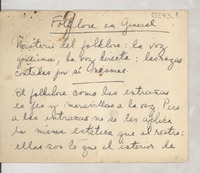 Folklore en General
Materia del folklore: la voz
genuina, la voz directa; las razas
oídas por sí mismas.
El folklore como las entrañas
es feo y maravilloso a la vez. Pero
a las entrañas no se les aplica
la misma estética que al rostro:
ellas son lo que el interior de